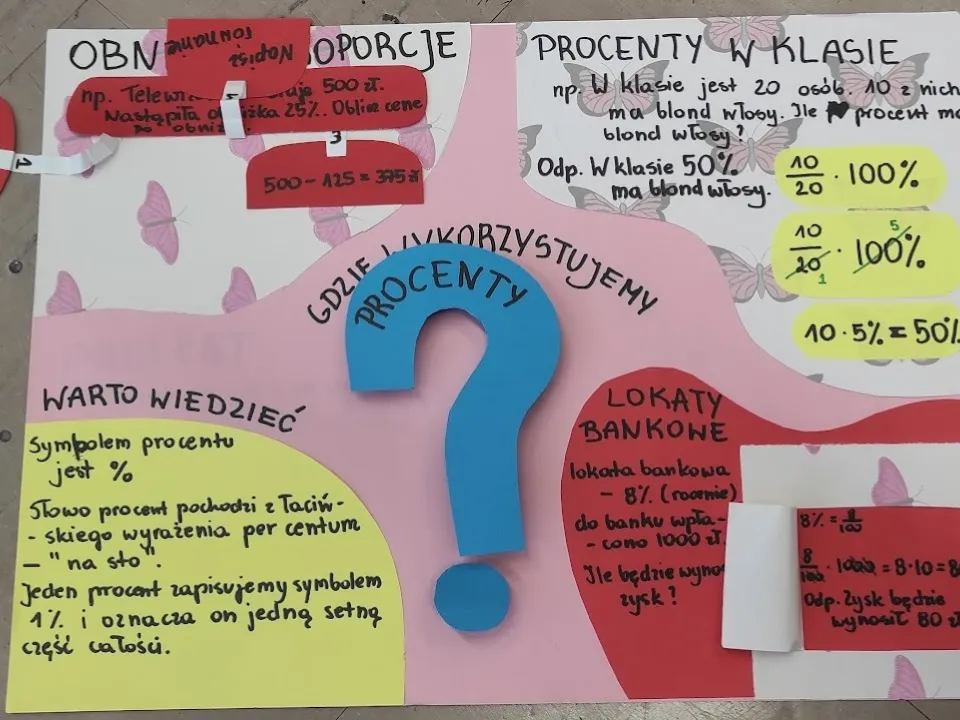 OBN OPORCJE
Napisz
równanie
np. Telewi uje 500 zł.
Nastąpiła o iżka 25%. Oblicz cenę
po obniż
1
3
500 - 125 = 375 zł
PROCENTY W KLASIE
np. W klasie jest 20 osób. 10 z nich
ma blond włosy. Ile procent ma
blond włosy?
Odp. W klasie 50%
ma blond włosy.
10/20 · 100%
10/20 · 100%
5
1
10 · 5% = 50%
GDZIE WYKORZYSTUJEMY
PROCENTY
WARTO WIEDZIEĆ
Symbolem procentu
jest %
Słowo procent pochodzi z łaciń-
- skiego wyrażenia per centum
– "na sto".
Jeden procent zapisujemy symbolem
1% i oznacza on jedną setną
część całości.
LOKATY
BANKOWE
lokata bankowa
- 8% (rocznie)
do banku wpła-
- cono 1000 zł.
Ile będzie wyno
zysk?
8% = 8/100
8/100 · 1000 = 8·10 = 8
Odp. Zysk będzie
wynosić 80 zł